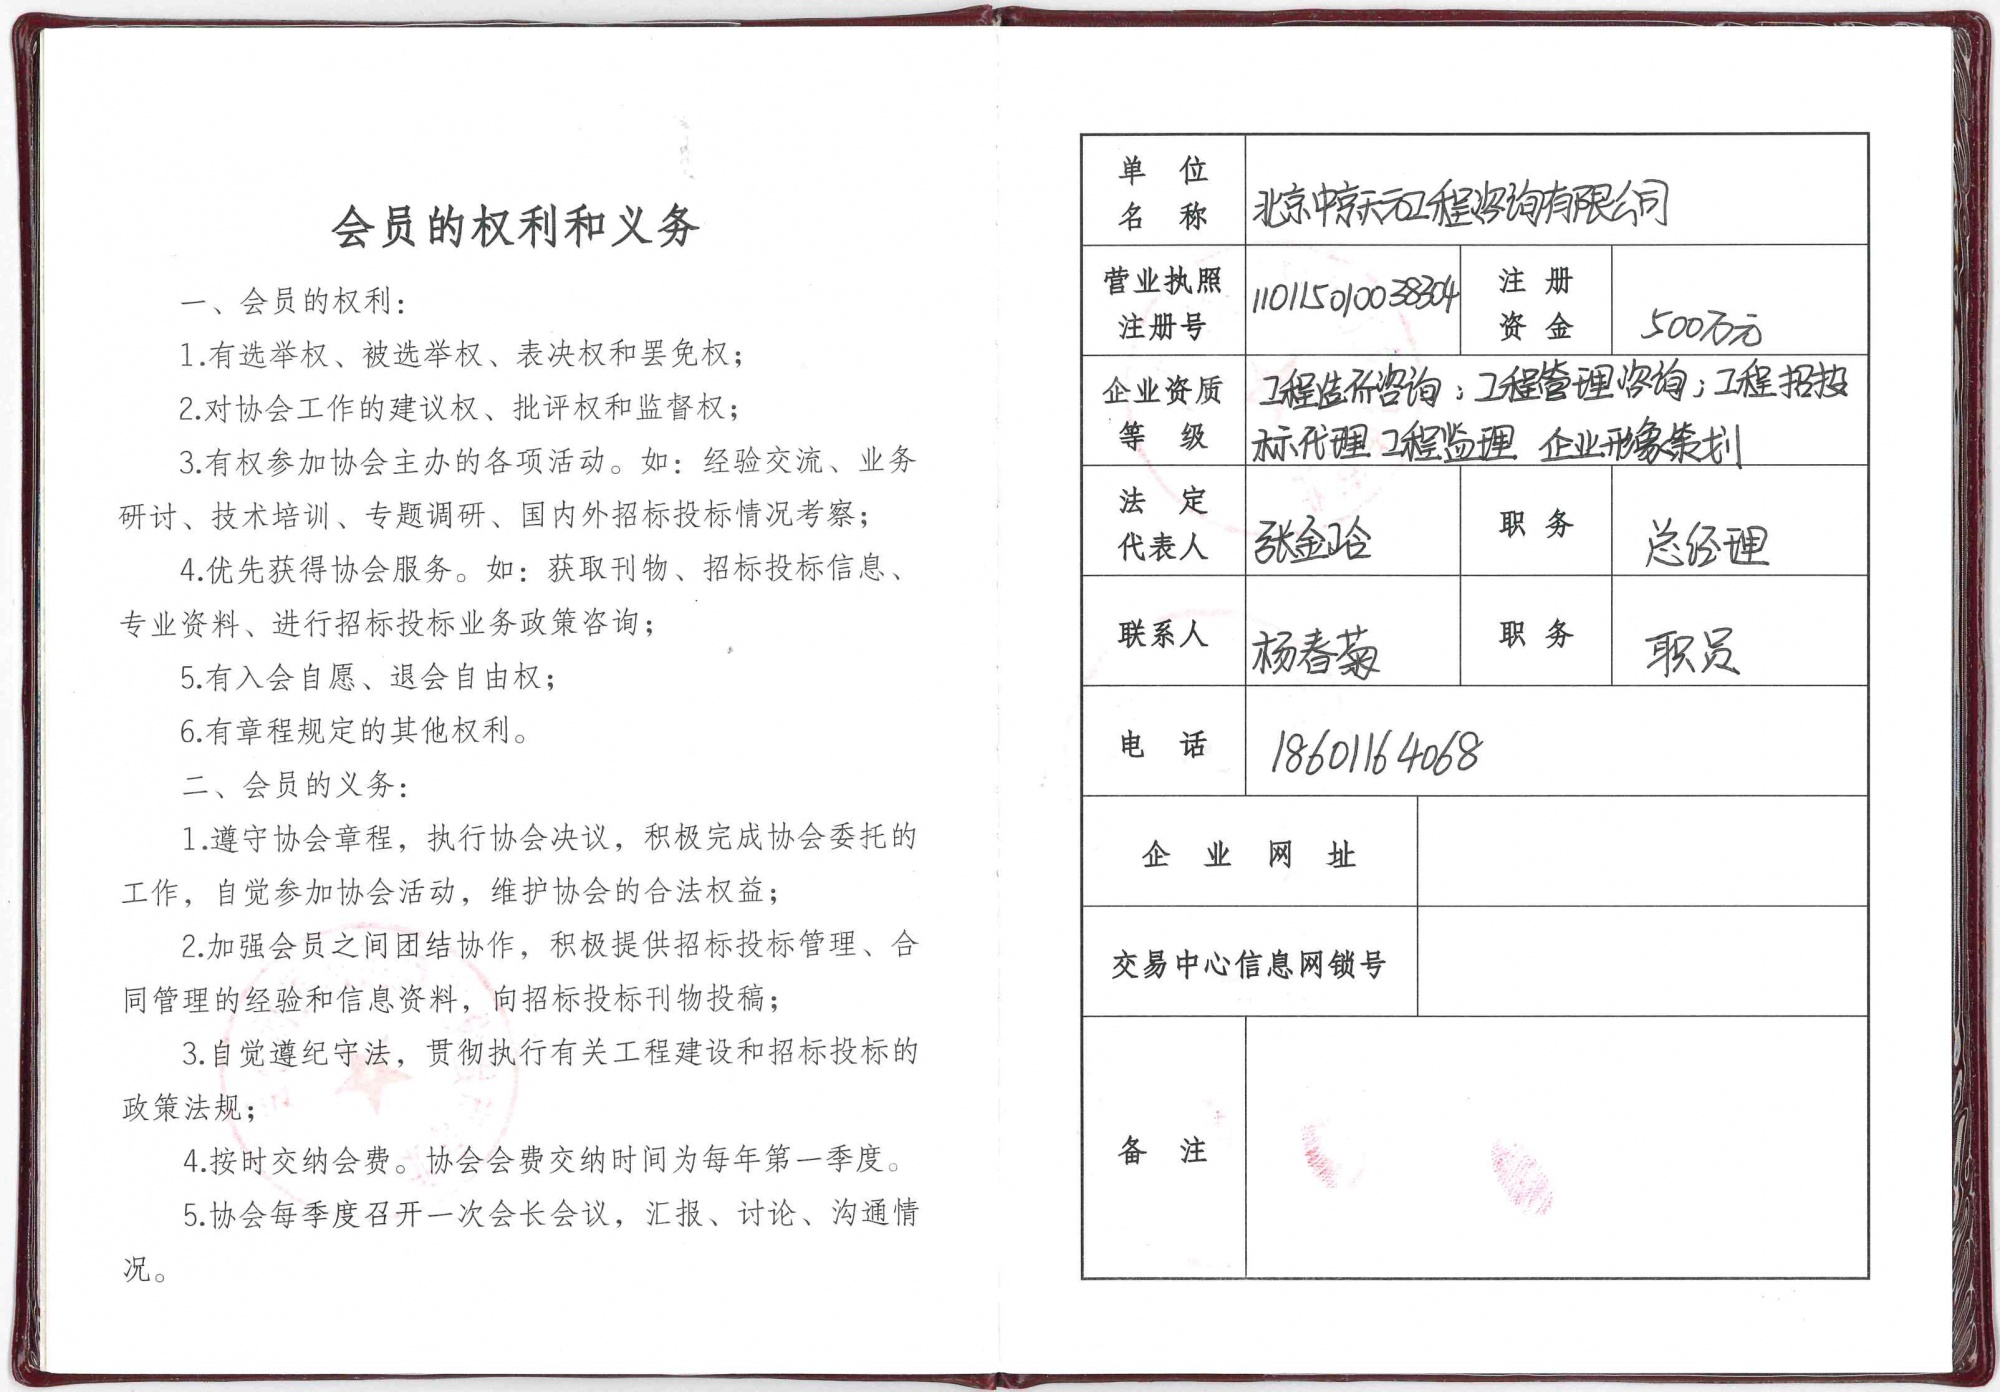 会员的权利和义务
一、会员的权利：
1.有选举权、被选举权、表决权和罢免权；
2.对协会工作的建议权、批评权和监督权；
3.有权参加协会主办的各项活动。如：经验交流、业务
研讨、技术培训、专题调研、国内外招标投标情况考察；
4.优先获得协会服务。如：获取刊物、招标投标信息、
专业资料、进行招标投标业务政策咨询；
5.有入会自愿、退会自由权；
6.有章程规定的其他权利。
二、会员的义务：
1.遵守协会章程，执行协会决议，积极完成协会委托的
工作，自觉参加协会活动，维护协会的合法权益；
2.加强会员之间团结协作，积极提供招标投标管理、合
同管理的经验和信息资料，向招标投标刊物投稿；
3.自觉遵纪守法，贯彻执行有关工程建设和招标投标的
政策法规；
4.按时交纳会费。协会会费交纳时间为每年第一季度。
5.协会每季度召开一次会长会议，汇报、讨论、沟通情
况。
单位名称 北京中京天元工程咨询有限公司
营业执照注册号 110115010038304 注册资金 500万元
企业资质等级 工程造价咨询；工程管理咨询；工程招投
标代理 工程监理 企业形象策划
法定代表人 张金玲 职务 总经理
联系人 杨春菊 职务 职员
电话 18601164068
企业网址
交易中心信息网锁号
备注